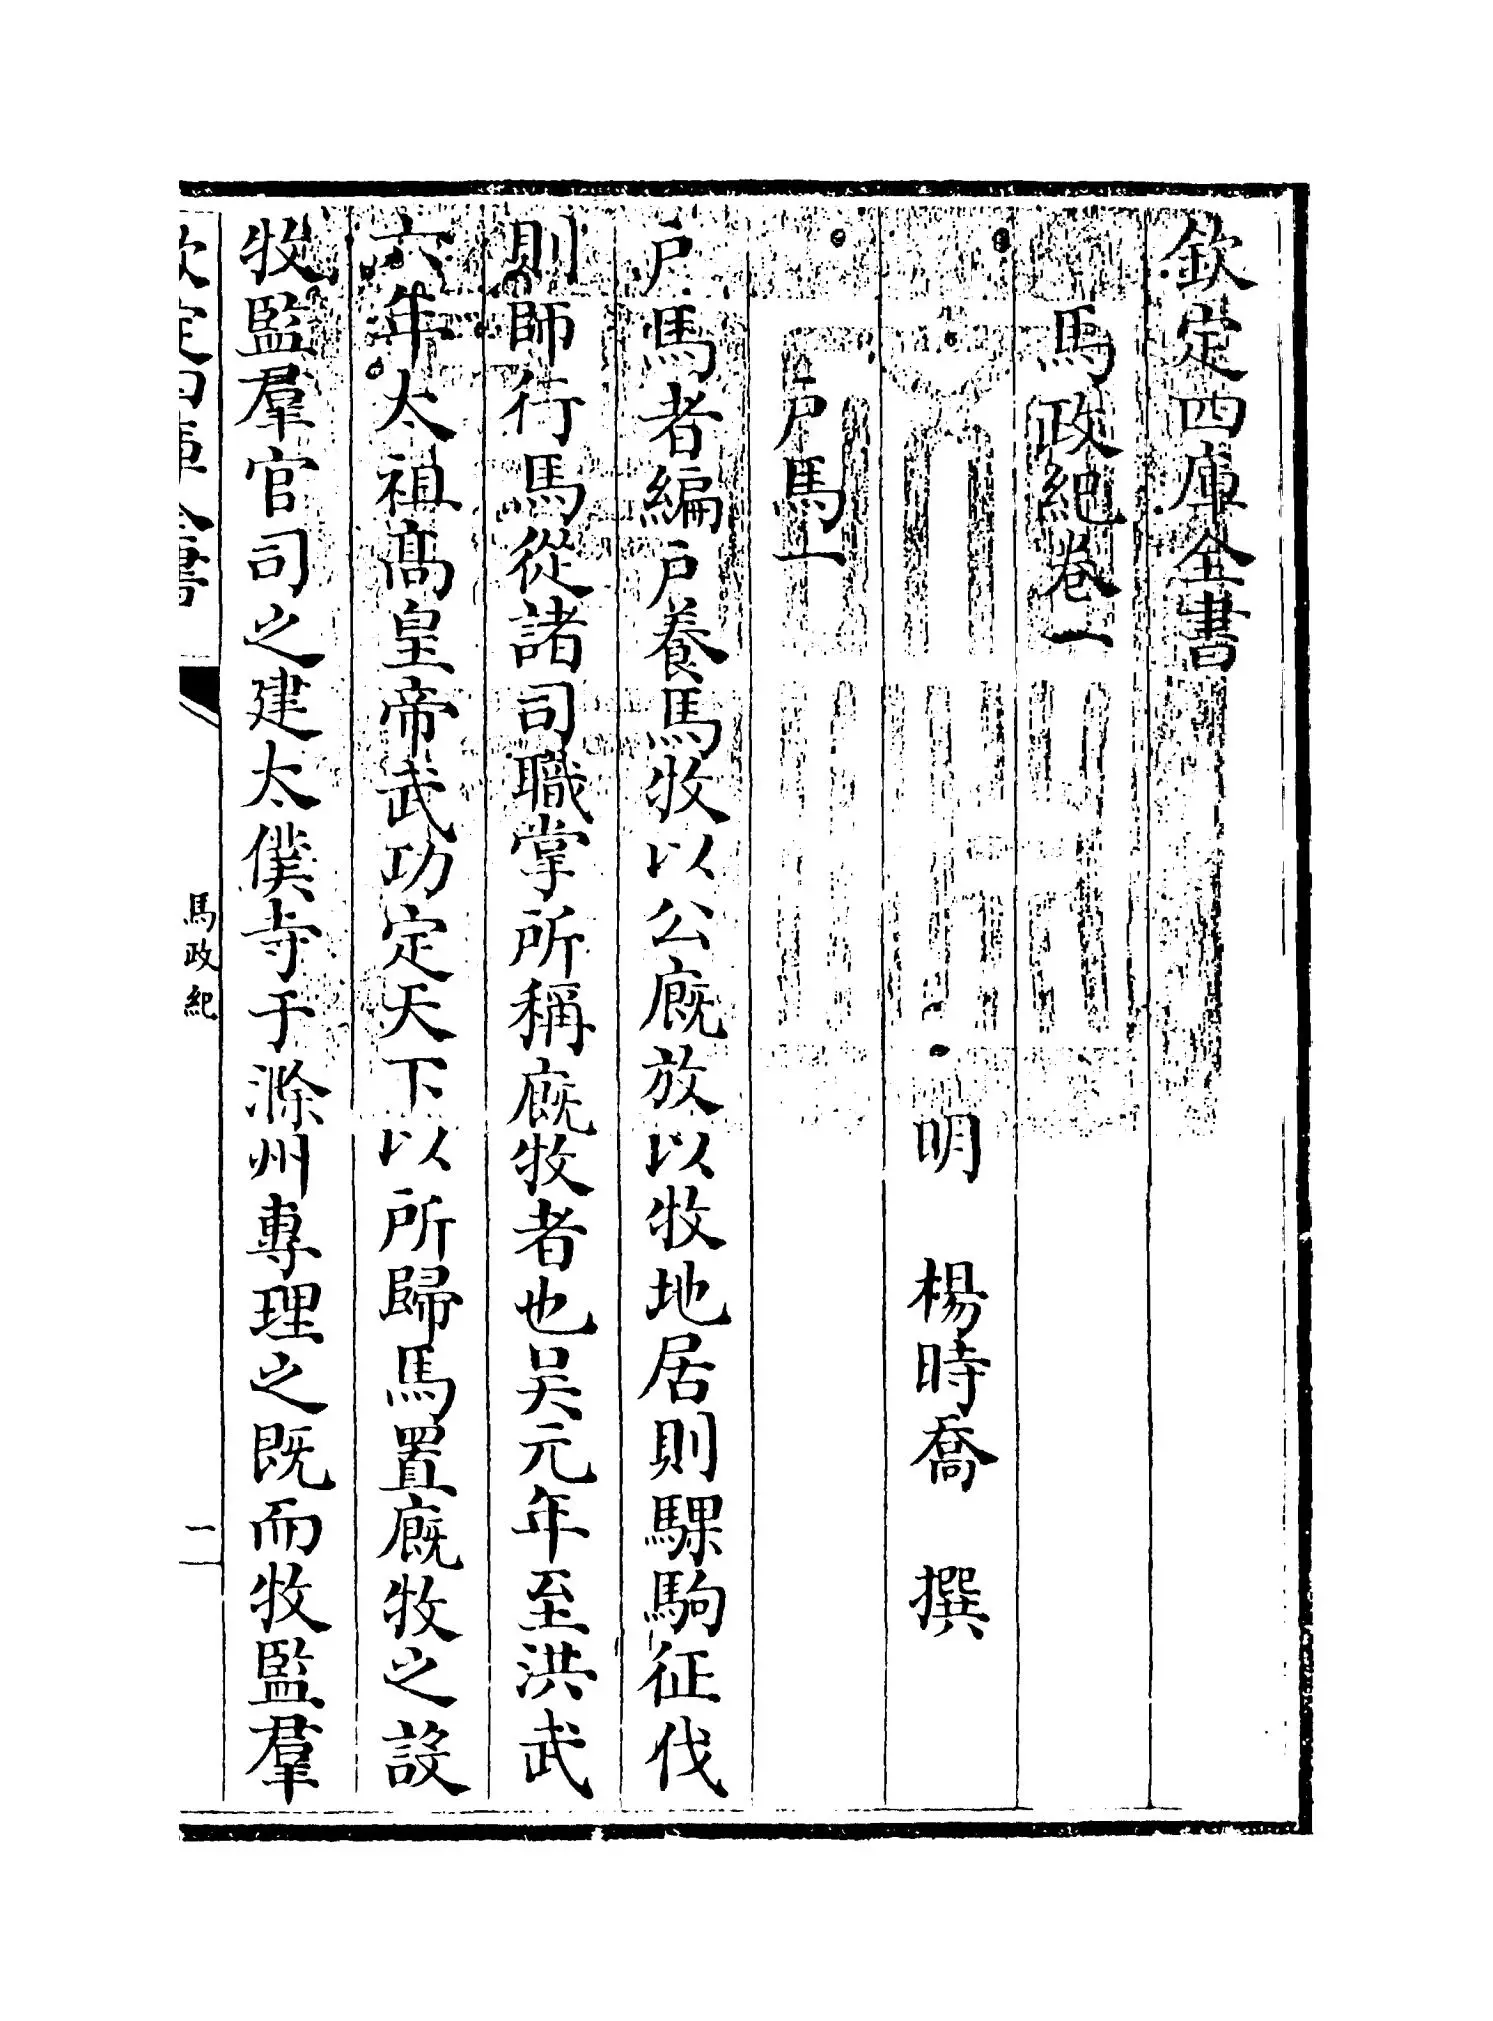 欽定四庫全書
馬政紀卷一
明 楊時喬 撰
戶馬一
戶馬者編戶養馬牧以公廐放以牧地居則騍駒征伐
則師行馬從諸司職掌所稱廐牧者也吴元年至洪武
六年太祖高皇帝武功定天下以所歸馬置廐牧之設
牧監羣官司之建太僕寺于滁州專理之既而牧監羣
欽定四庫全書
馬政紀